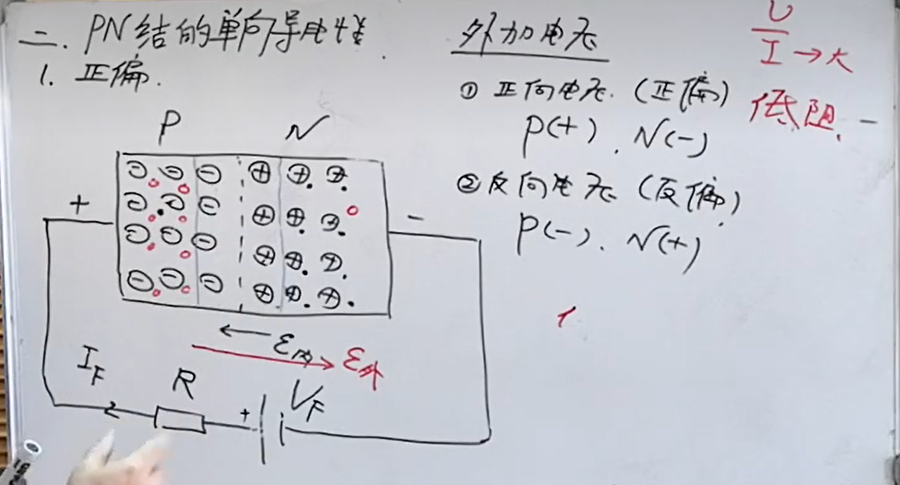 二. PN结的单向导电性.
1. 正偏.
P N
+ -
ε内
ε外
I_F
R
+
V_F
外加电压
① 正向电压. (正偏)
P(+). N(-)
② 反向电压 (反偏)
P(-). N(+)
U/I → 大
低阻.